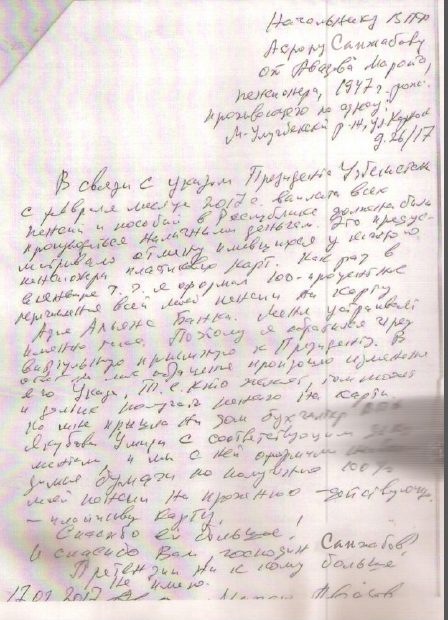 Начальнику ВПФ
Аарону Санжабову
от Авазова Марата,
пенсионера, 1947 г. рожд.
проживающего по адресу:
М-Улугбекский р-н, ул.
д. 26/17
В связи с указом Президента Узбекистана
с февраля месяца 2017 г. выплата всех
пенсий и пособий в Республике должна была
проводиться наличными деньгами. Это предус-
матривало отмену имевшихся у каждого
пенсионера пластиковых карт. Как раз в
январе т. г. я оформил 100-процентное
перечисление всей моей пенсии на карту
Азия Альянс Банка. Меня устраивало
именно такое. Поэтому я обратился через
виртуальную приемную к Президенту. В
ответ на мое обращение произошло изменение
его Указа, т. е. кто желает, тот может
и дальше получать пенсию на карты.
Ко мне пришла на дом бухгалтер
Якубова Умида с соответствующим
и мы с ней оформили
бумаги по получению 100%
моей пенсии на прежнюю - действующую
- пластикову карту.
Спасибо ей большое!
И спасибо Вам, господин Санжабов!
Претензий ни к кому больше
не имею.
17.02.2017